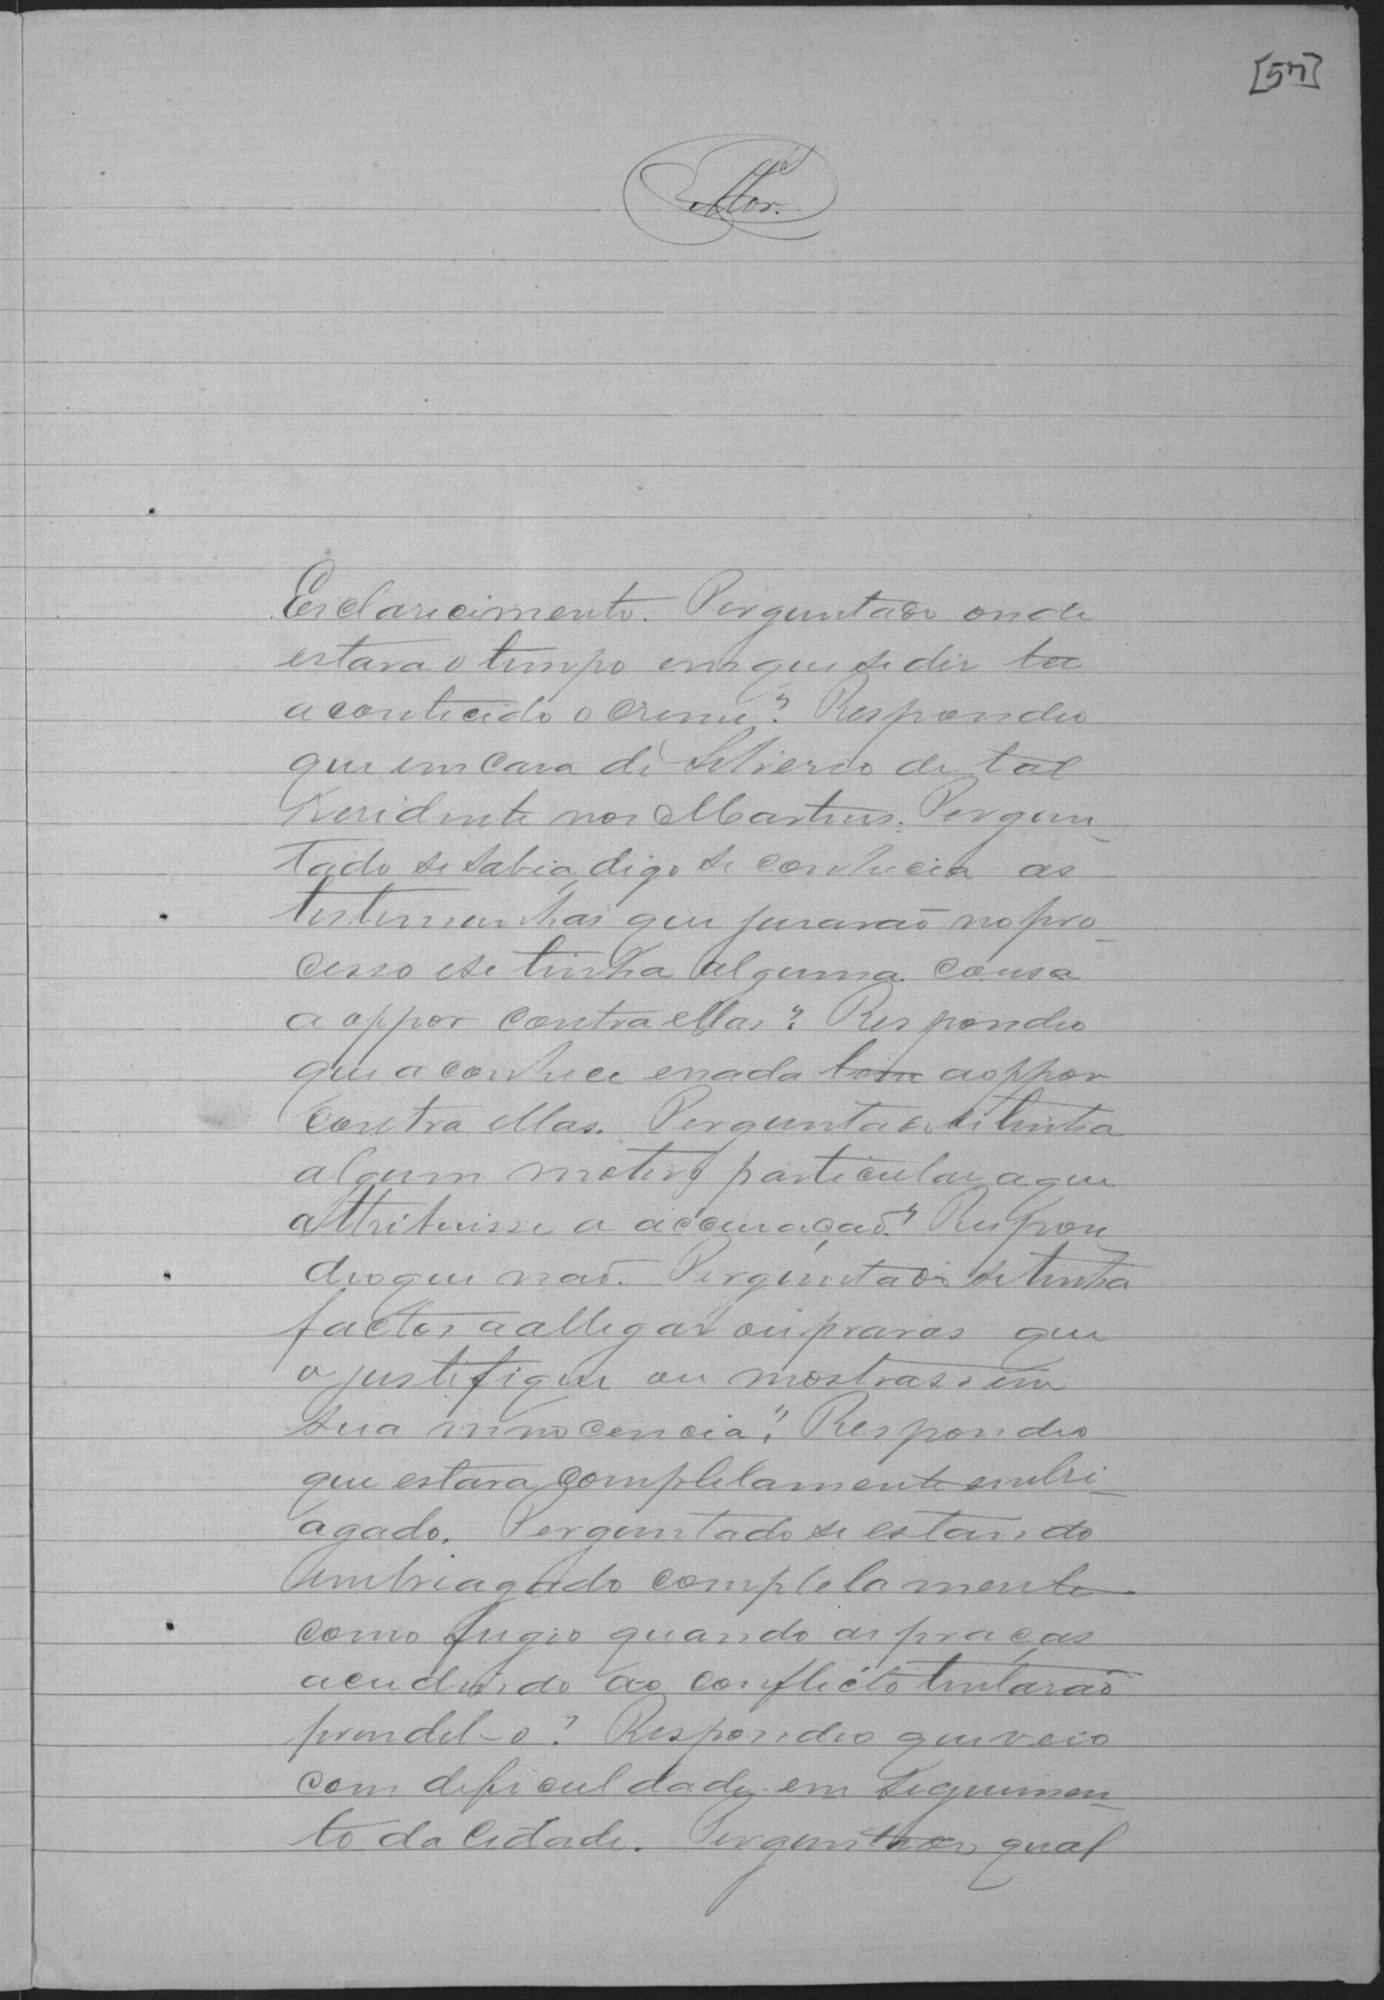 [57]
Esclarecimento. Perguntado onde
estava o tempo em que se diz ter
acontecido o crime? Respondeo
que em casa de Silverio de tal
residente nos Martins. Pergun-
tado se sabia, digo se conhecia as
testemunhas que jurarão no pro-
cesso e se tinha alguma cousa
a oppor contra ellas? Respondeo
que a conhece e nada tem a oppor
contra ellas. Perguntado se tinha
algum motivo particular a que
attribuisse a accusação? Respon
deo que não. Perguntado se tinha
factos a allegar ou provas que
o justifique ou mostrassem
sua innocencia? Respondeo
que estava completamente embri-
agado. Perguntado se estando
embriagado completamente
como fugio quando as praças
acudindo ao conflicto tentarão
prendel-o? Respondeo que veio
com deficuldade em seguimen-
to da Cidade. Perguntado qual